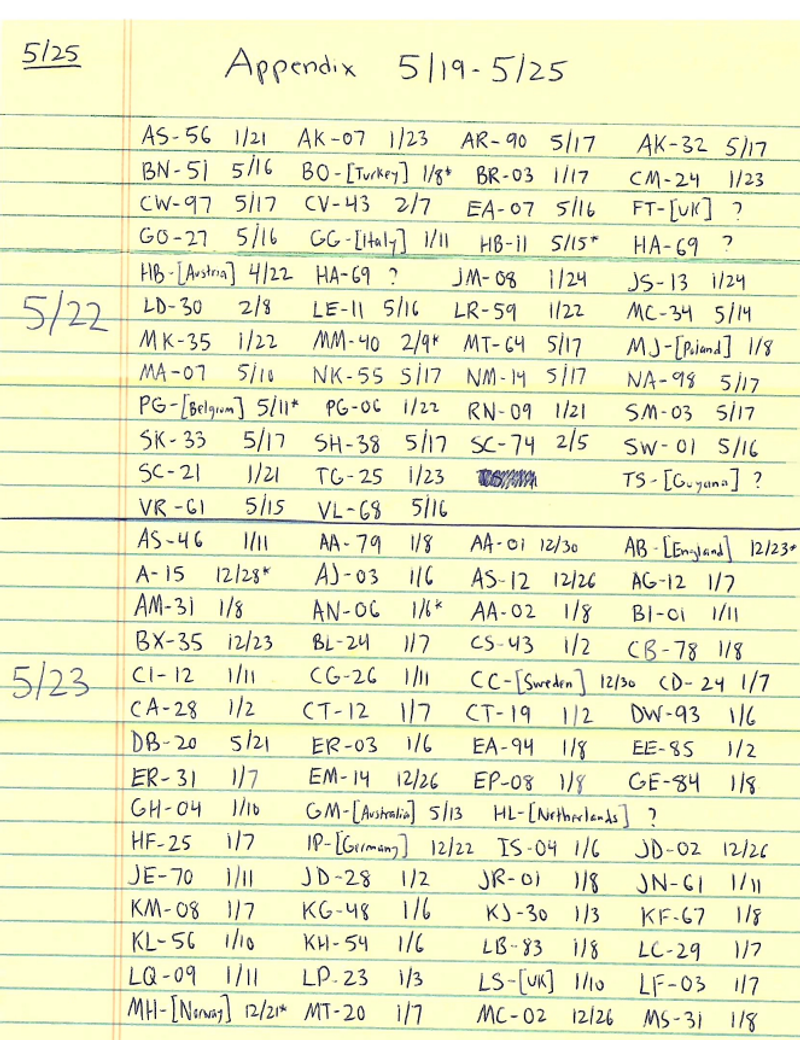 5/25 Appendix 5/19-5/25
AS-56 1/21 AK-07 1/23 AR-90 5/17 AK-32 5/17
BN-51 5/16 BO-[Turkey] 1/8* BR-03 1/17 CM-24 1/23
CW-97 5/17 CV-43 2/7 EA-07 5/16 FT-[UK] ?
GO-27 5/16 GG-[Italy] 1/11 HB-11 5/15* HA-69 ?
HB-[Austria] 4/22 HA-69 ? JM-08 1/24 JS-13 1/24
5/22 LD-30 2/8 LE-11 5/16 LR-59 1/22 MC-34 5/14
MK-35 1/22 MM-40 2/9* MT-64 5/17 MJ-[Poland] 1/8
MA-07 5/10 NK-55 5/17 NM-14 5/17 NA-98 5/17
PG-[Belgium] 5/11* PG-06 1/22 RN-09 1/21 SM-03 5/17
SK-33 5/17 SH-38 5/17 SC-74 2/5 SW-01 5/16
SC-21 1/21 TG-25 1/23 TS-[Guyana] ?
VR-61 5/15 VL-68 5/16
AS-46 1/11 AA-79 1/8 AA-01 12/30 AB-[England] 12/23*
A-15 12/28* AJ-03 1/6 AS-12 12/26 AG-12 1/7
AM-31 1/8 AN-06 1/6* AA-02 1/8 BI-01 1/11
BX-35 12/23 BL-24 1/7 CS-43 1/2 CB-78 1/8
5/23 CI-12 1/11 CG-26 1/11 CC-[Sweden] 12/30 CD-24 1/7
CA-28 1/2 CT-12 1/7 CT-19 1/2 DW-93 1/6
DB-20 5/21 ER-03 1/6 EA-94 1/8 EE-85 1/2
ER-31 1/7 EM-14 12/26 EP-08 1/8 GE-84 1/8
GH-04 1/10 GM-[Australia] 5/13 HL-[Netherlands] ?
HF-25 1/7 IP-[Germany] 12/22 IS-04 1/6 JD-02 12/26
JE-70 1/11 JD-28 1/2 JR-01 1/8 JN-61 1/11
KM-08 1/7 KG-48 1/6 KJ-30 1/3 KF-67 1/8
KL-56 1/10 KH-54 1/6 LB-83 1/8 LC-29 1/7
LQ-09 1/11 LP-23 1/3 LS-[UK] 1/10 LF-03 1/7
MH-[Norway] 12/21* MT-20 1/7 MC-02 12/26 MS-31 1/8